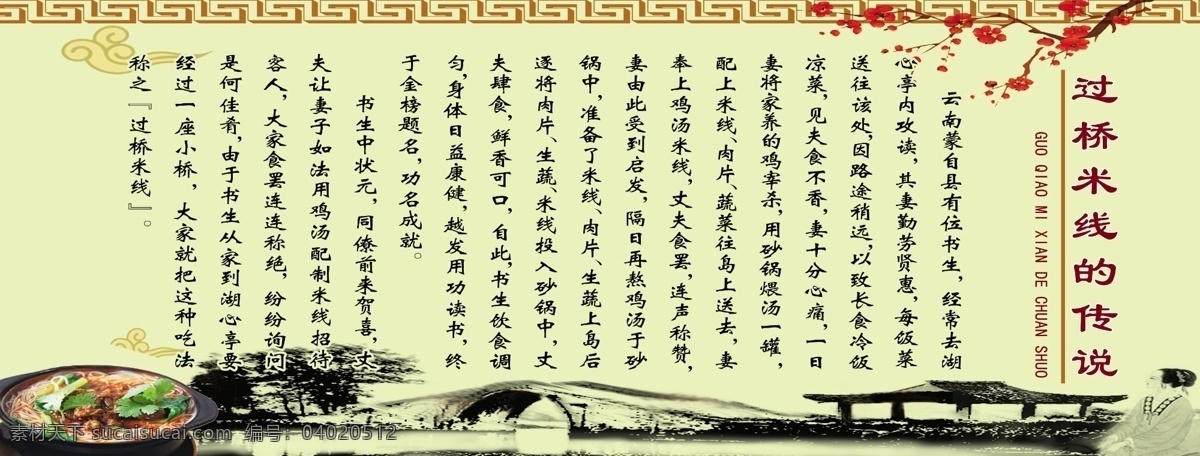 过桥米线的传说
GUO QIAO MI XIAN DE CHUAN SHUO
云南蒙自县有位书生，经常去湖
心亭内攻读，其妻勤劳贤惠，每饭菜
送往该处，因路途稍远，以致长食冷饭
凉菜，见夫食不香，妻十分心痛，一日
妻将家养的鸡宰杀，用砂锅煨汤一罐，
配上米线、肉片、蔬菜往岛上送去，妻
奉上鸡汤米线，丈夫食罢，连声称赞，
妻由此受到启发，隔日再熬鸡汤于砂
锅中，准备了米线、肉片、生蔬上岛后
逐将肉片、生蔬、米线投入砂锅中，丈
夫肆食，鲜香可口，自此，书生饮食调
匀，身体日益康健，越发用功读书，终
于金榜题名，功名成就。
书生中状元，同僚前来贺喜，丈
夫让妻子如法用鸡汤配制米线招待
客人，大家食罢连连称绝，纷纷询问
是何佳肴，由于书生从家到湖心亭要
经过一座小桥，大家就把这种吃法
称之『过桥米线』。
素材天下 sucaisucai.com 编号：04020512